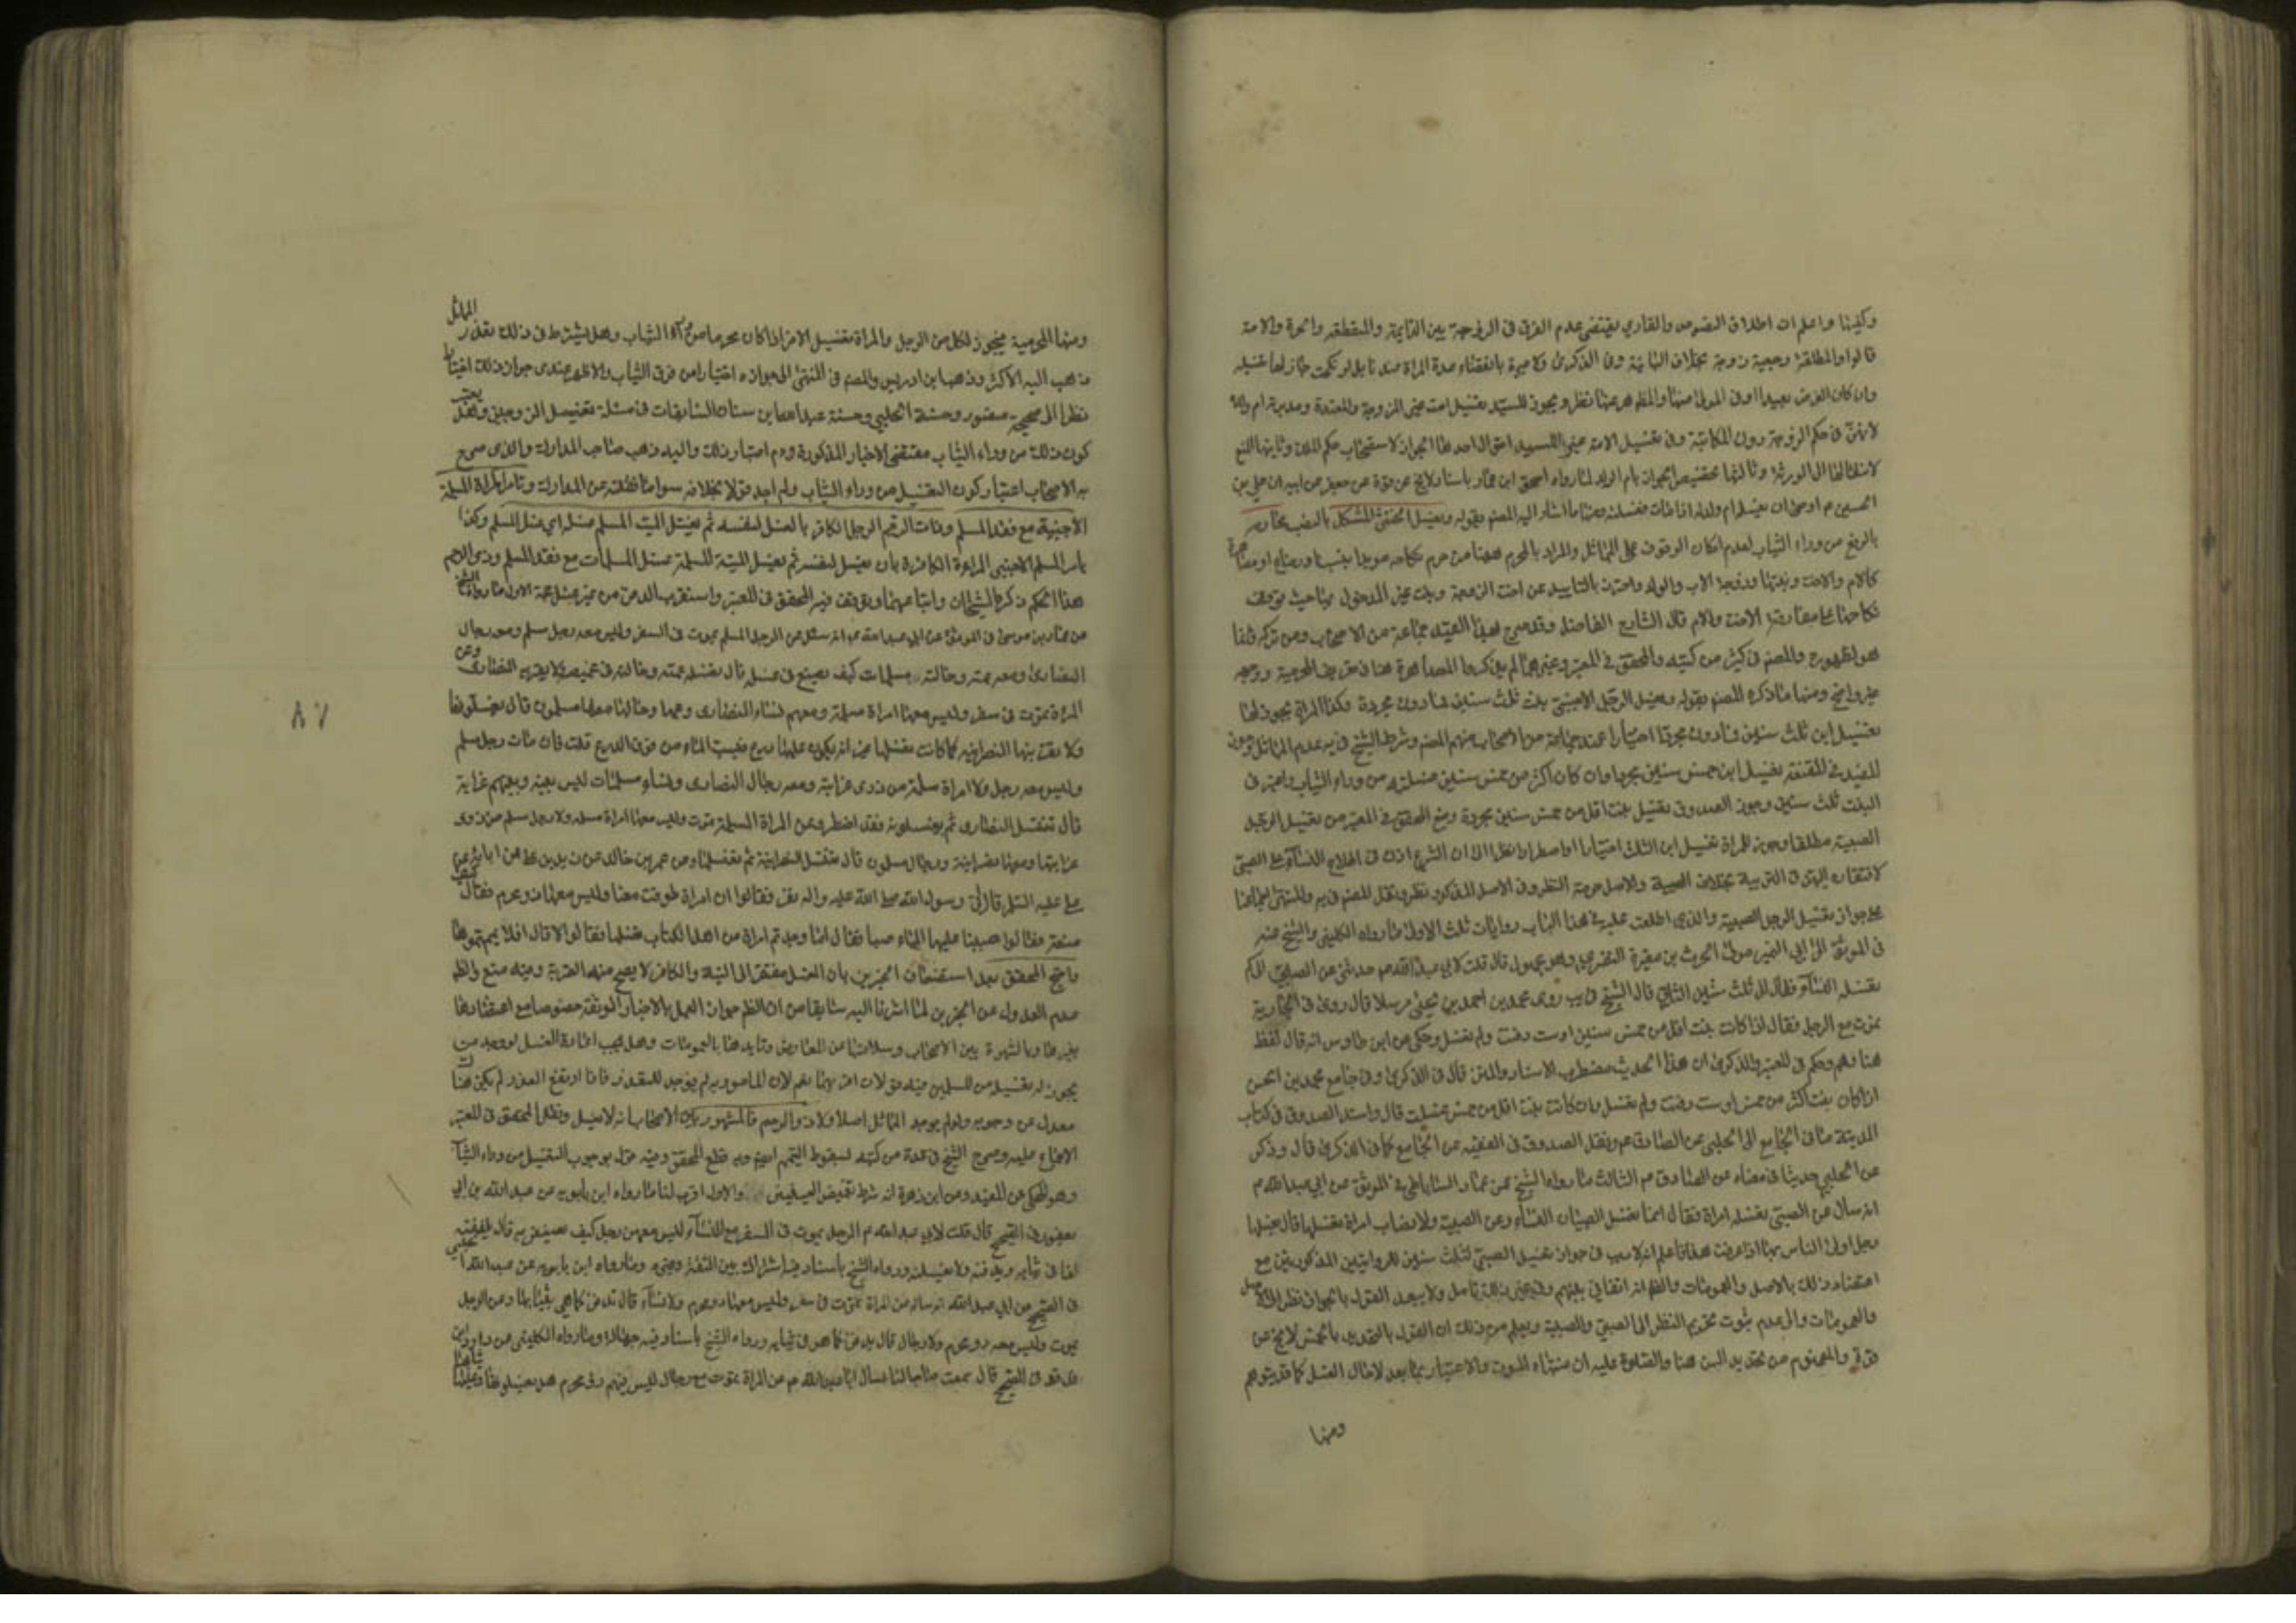 وكفينا واعلم ان اطلاق النصوص والفتاوي يقتضي عدم الفرق في الزوجة بين الدائمة والمنقطعة والحرة والامة
قالوا والمطلقة رجعية زوجة بخلاف البائنة وفي الذكرى ولا عبرة بانقضاء عدة المراة عندنا بل لو نكحت جاز لها تغسيله
وان كان الفرض بعيدا
لانهن في حكم الزوجة دون المكاتبة وفي تغسيل الامة
لانتقالها الى الورثة وثالثها تخصيص الجواز بام الولد لما رواه اسحق ابن عمار باسناد لا يخ عن قوة عن جعفر عن ابيه ان علي بن
الحسين م اوصى ان تغسله ام ولد له اذا مات فغسلته ومنها ما اشار اليه المصم بقوله ويغسل الخنثى المشكل
من وراء الثياب لعدم امكان الوقوف على المماثل والمراد بالمحرم ههنا من حرم نكاحه مؤبدا بنسب او رضاع او مصاهرة
كالام والاخت وبنتها وزوجة الاب والولد واحترز بالتابيد عن اخت الزوجة وبنت غير المدخول بها حيث توقف
نكاحها على مفارقة الاخت والام قال الشارح الفاضل وقد صرح بهذا القيد جماعة من الاصحاب ومن تركه فلما
هو لظهوره والمصم في كثير من كتبه والمحقق في المعتبر وغيرهما لم يذكروا المصاهرة هنا في تعريف المحرمية ووجهه
غير واضح ومنها ما ذكره المصم بقوله ويغسل الرجل الاجنبي بنت ثلث سنين فما دون مجردة وكذا المراة يجوز لها
تغسيل ابن ثلث سنين فما دون مجردا اختيارا عند جماعة من الاصحاب منهم المصم وشرط الشيخ في يه عدم المماثل وجوز
المفيد في المقنعة تغسيل ابن خمس سنين مجردا وان كان اكثر من خمس سنين غسلته من وراء الثياب واعتبر في
البنت ثلث سنين وجوز الصدوق تغسيل بنت اقل من خمس سنين مجردة ومنع المحقق في المعتبر من تغسيل الرجل
الصبية مطلقا وجوز للمراة تغسيل ابن الثلث اختيارا او اضطرارا نظرا الى ان الشرع اذن في اطلاع النساء على الصبي
لافتقاره اليهن في التربية بخلاف الصبية والاصل حرمة النظر وفي الاصل المذكور نظر ونقل المصم في يه والمنتهى اجماعنا
على جواز تغسيل الرجل الصبية والذي اطلعت عليه في هذا الباب روايات ثلث الاولى ما رواه الكليني والشيخ عنه
في الموثق الى ابي النمير مولى الحرث بن مغيرة النضري وهو مجهول قال قلت لابي عبد الله م حدثني عن الصبي الى كم
تغسله النساء فقال الى ثلث سنين الثاني قال الشيخ في يب روى محمد بن احمد بن يحيى مرسلا قال روي في الجارية
تموت مع الرجل فقال اذا كانت بنت اقل من خمس سنين او ست دفنت ولم تغسل وحكي عن ابن طاوس انه قال لفظ
هنا وهم وحكم في المعتبر والذكرى ان هذا الحديث مضطرب الاسناد والمتن قال في الذكرى وفي جامع محمد بن الحسن
اذا كان بنت اكثر من خمس او ست دفنت ولم تغسل وان كانت بنت اقل من خمس غسلت قال واسند الصدوق في كتاب
المدينة ما في الجامع الى الحلبي عن الصادق م ونقل الصدوق في الفقيه عن الجامع كما في الذكرى قال وذكر
عن الحلبي حديثا في معناه عن الصادق م الثالث ما رواه الشيخ عن عمار الساباطي في الموثق عن ابي عبد الله م
انه سال عن الصبي تغسله امراة فقال انما تغسل الصبيان النساء وعن الصبية ولا تصاب امراة تغسلها قال يغسلها
رجل اولى الناس بها اذا عرفت هذا فاعلم انه لا ريب في جواز تغسيل الصبي لثلث سنين للروايتين المذكورتين مع
اعتضاد ذلك بالاصل والعمومات والظ انه اتفاقي بينهم وفي غير ذلك تامل ولا يبعد القول بالجواز نظرا الى الاصل
والعمومات والى عدم ثبوت تحريم النظر الى الصبي والصبية ويعلم من ذلك ان القول بالتحديد بالخمس لا يخ عن
قوة والمفهوم من تحديد السن هنا والصلوة عليه ان منتهاه الموت والاعتبار بما بعد لاحال الغسل كما قد يتوهم
ومنها
المماثل
ومنها المحرمية فيجوز لكل من الرجل والمراة تغسيل الاخر اذا كان محرما من وراء الثياب وهل يشترط في ذلك تعذر
ذهب اليه الاكثر وذهب ابن ادريس والمصم في المنتهى الى جوازه اختيارا من فوق الثياب والاظهر عندي جواز ذلك اختيارا
نظرا الى صحيحة منصور وحسنة الحلبي وحسنة عبد الله ابن سنان السابقات في مسئلة تغسيل الزوجين وهل يعتبر
كون ذلك من وراء الثياب مقتضى الاخبار المذكورة عدم اعتبار ذلك واليه ذهب صاحب المدارك والذي صرح
به الاصحاب اعتبار كون التغسيل من وراء الثياب ولم اجد قولا بخلافه سوا ما نقلته عن المدارك وتامر المراة المسلمة
الاجنبية مع فقد المسلم وذات الرحم الرجل الكافر بالغسل لنفسه ثم يغسل الميت المسلم غسل اي مثل المسلم وكذا
يامر المسلم الاجنبي المراءة الكافرة بان تغسل لنفسها ثم تغسل الميتة المسلمة غسل المسلمات مع فقد المسلم وذي الرحم
هذا الحكم ذكره الشيخان واتباعهما وتوقف فيه المحقق في المعتبر واستقرب الدفن من غير غسل حجة الاول ما رواه الشيخ
عن عمار بن موسى في الموثق عن ابي عبد الله م انه سئل عن الرجل المسلم يموت في السفر وليس معه رجل مسلم ومعه رجال
النصارى ومعه عمته وخالته مسلمات كيف يصنع في غسله قال تغسله عمته وخالته في قميصه ولا يقربه النصارى وعن
المراة تموت في سفر وليس معها امراة مسلمة ومعهم نساء النصارى وعمها وخالها معها مسلمون قال يغسلونها
ولا تقربنها النصرانية كما كانت تغسلها غير انه يكون عليها درع فيصب الماء من فوق الدرع قلت فان مات رجل مسلم
وليس معه رجل ولا امراة مسلمة من ذوي قرابته ومعه رجال النصارى ونساء مسلمات ليس بينه وبينهم قرابة
قال تغتسل النصارى ثم يغسلونه فقد اضطر وعن المراة المسلمة تموت وليس معها امراة مسلمة ولا رجل مسلم من ذوي
قرابتها ومعها نصرانية ورجال مسلمون قال تغتسل النصرانية ثم تغسلها وعن عمرو بن خالد عن زيد بن علي عن ابائه عن
علي عليه السلم قال اتى رسول الله صلى الله عليه واله نفر فقالوا ان امراة توفت معنا وليس معها ذو محرم فقال كيف
صنعتم فقالوا صببنا عليها الماء صبا فقال اما وجدتم امراة من اهل الكتاب تغسلها فقالوا لا قال افلا يممتموها
واحتج المحقق بعد استضعاف الخبرين بان الغسل مفتقر الى النية والكافر لا يصح منه القربة وفيه منع والظ
عدم العدول عن الخبرين لما اشرنا اليه سابقا من ان الظ جواز العمل بالاخبار الموثقة خصوصا مع اعتضادها
بالشهرة بين الاصحاب وسلامتها عن المعارض وتايدها بالعمومات وهل يجب اعادة الغسل لو وجد من
يجوز له تغسيله من المسلمين فيه قولان اقربهما نعم لان المامور به لم يوجد للتعذر فاذا ارتفع العذر لم يكن هنا
معدل عن وجوبه ولو لم يوجد المماثل اصلا ولا ذو الرحم فالمشهور بين الاصحاب انه لا يغسل ونقل المحقق في المعتبر
الاجماع عليه وصرح الشيخ في عدة من كتبه بسقوط التيمم ايضا وبه قطع المحقق وفيه قول بوجوب التغسيل من وراء الثياب
وهو المحكي عن المفيد وعن ابن زهرة انه شرط تغميض العينين والاول اقرب لنا ما رواه ابن بابويه عن عبد الله بن ابي
يعفور في الصحيح قال قلت لابي عبد الله م الرجل يموت في السفر مع النساء ليس معهن رجل كيف يصنعن به قال يلففنه
لفا في ثيابه ويدفنه ولا يغسلنه ورواه الشيخ باسناد فيه اشتراك بين الثقة وغيره وما رواه ابن بابويه عن عبد الله الحلبي
في الصحيح عن ابي عبد الله انه ساله عن المراة تموت في سفر وليس معها ذو محرم ولا نساء قال تدفن كما هي بثيابها وعن الرجل
يموت وليس معه ذو محرم ولا رجال قال يدفن كما هو في ثيابه ورواه الشيخ باسناد فيه جهالة وما رواه الكليني عن داود ابن
فرقد في الصحيح قال سمعت صاحبا لنا يسال ابا عبد الله م عن المراة تموت مع رجال ليس فيهم ذو محرم هل يغسلونها وعليها ثيابها
٨٧